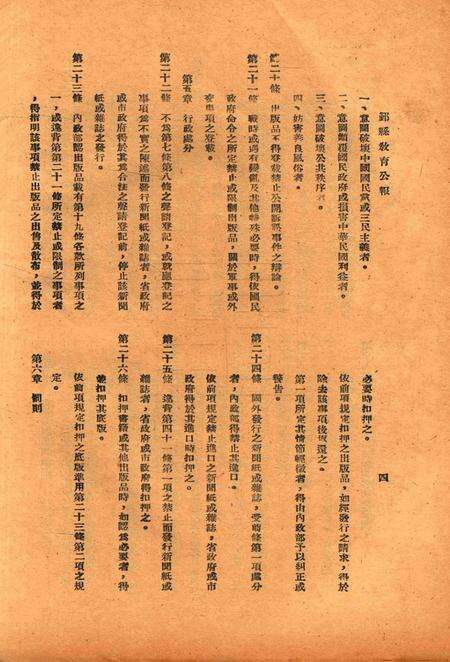 鄞縣教育公報
一、意圖破壞中國國民黨或三民主義者。
二、意圖顛覆國民政府或損害中華民國利益者。
三、意圖破壞公共秩序者。
四、妨害善良風俗者。
第二十條 出版品不得登載禁止公開訴訟事件之辯論。
第二十一條 戰時或遇有變亂及其他特殊必要時,得依國民
政府命令之所定禁止或限制出版品,關於軍事或外
交事項之登載。
第五章 行政處分
第二十二條 不為第七條第八條之聲請登記,或就應登記之
事項為不實之陳述而發行新聞紙或雜誌者,省政府
或市政府得於其為合法之聲請登記前,停止該新聞
紙或雜誌之發行。
第二十三條 內政部認出版品載有第十九條各款所列事項之
一,或違背第二十一條所定禁止或限制之事項者
,得指明該事項禁止出版品之出售及散布,並得於
四
必要時扣押之。
依前項規定扣押之出版品,如經發行之請求,得於
除去該事項後返還之。
第一項所定其情節輕微者,得由內政部予以糾正或
警告。
第二十四條 國外發行之新聞紙或雜誌,受前條第一項處分
者,內政部得禁止其進口。
依前項規定禁止進口之新聞紙或雜誌,省政府或市
政府得於其進口時扣押之。
第二十五條 違背第四十一條第一項之禁止而發行新聞紙或
雜誌者,省政府或市政府得扣押之。
第二十六條 扣押書籍或其他出版品時,如認為必要者,得
並扣押其底版。
依前項規定扣押之底版準用第二十三條第二項之規
定。
第六章 罰則